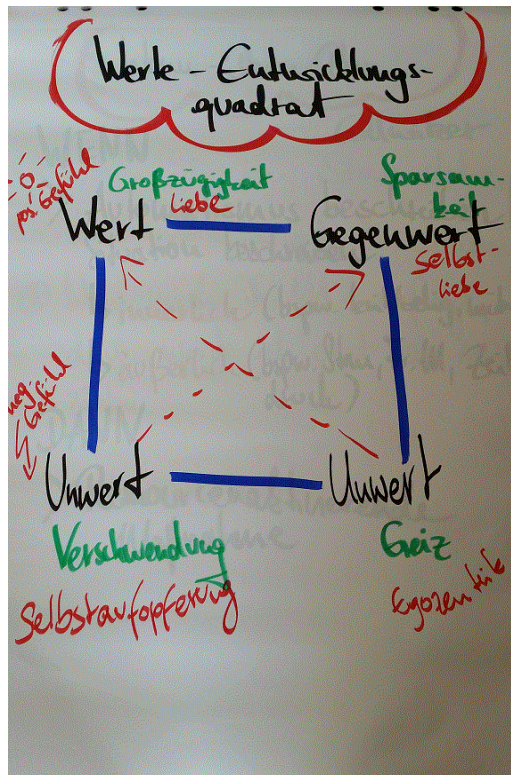 Werte-Entwicklungs-
quadrat
pos. Gefühl
Großzügigkeit
Liebe
Sparsam-
keit
Wert
Gegenwert
Selbst-
liebe
neg. Gefühl
Unwert
Unwert
Verschwendung
Geiz
Selbstaufopferung
Egozentrik